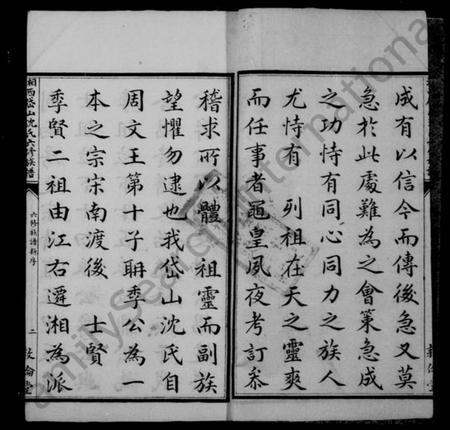 成有以信今而傳後急又莫
急於此處難為之會策急成
之功恃有同心同力之族人
尤恃有 列祖在天之靈爽
而任事者黽皇夙夜考訂叅
稽求所以體 祖靈而副族
望懼勿逮也我岱山沈氏自
周文王第十子聃季公為一
本之宗宋南渡後 士賢
季賢二祖由江右遷湘為派
湘西岱山沈氏六修族譜
六修族譜新序
二
敦倫堂
FamilySearch International